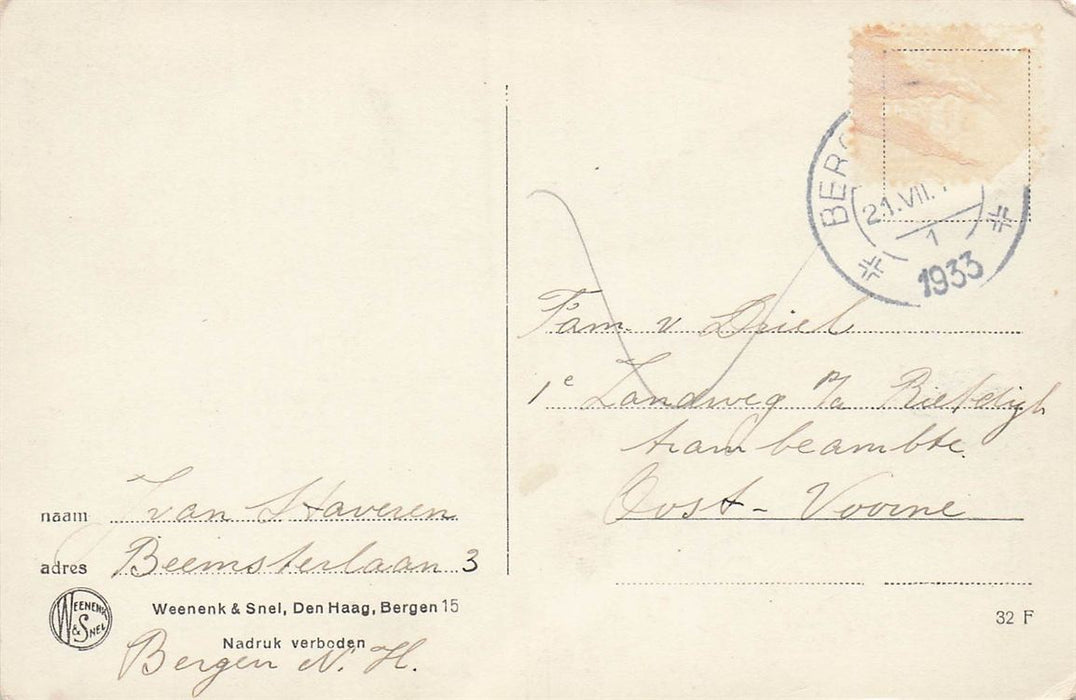 BERG
21.VII.
1
1933
Fam. v Driel
1e Landweg p/a Rietdijk
trambeambte.
Oost-Voorne
naam J van Staveren
adres Beemsterlaan 3
WEENENK & SNEL
Weenenk & Snel, Den Haag, Bergen 15
Nadruk verboden
Bergen N. H.
32 F